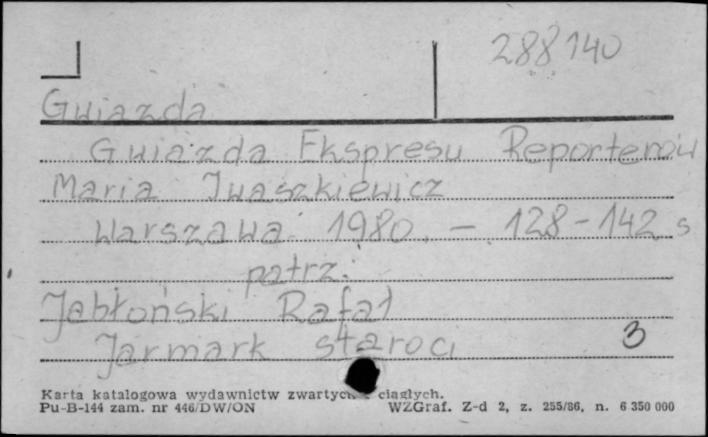 288140
Gwiazda
Gwiazda Ekspresu Reporterów
Maria Iwaszkiewicz
Warszawa 1980. - 128-142 s
patrz:
Jabłoński Rafał
Jarmark staroci
3
Karta katalogowa wydawnictw zwartych ciągłych.
Pu-B-144 zam. nr 446/DW/ON WZGraf. Z-d 2, z. 255/86, n. 6 350 000